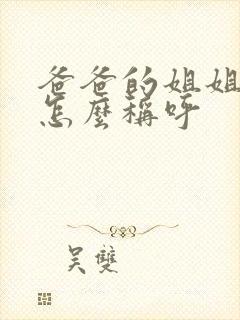 爸爸的姐姐
怎麼稱呼
吴雙